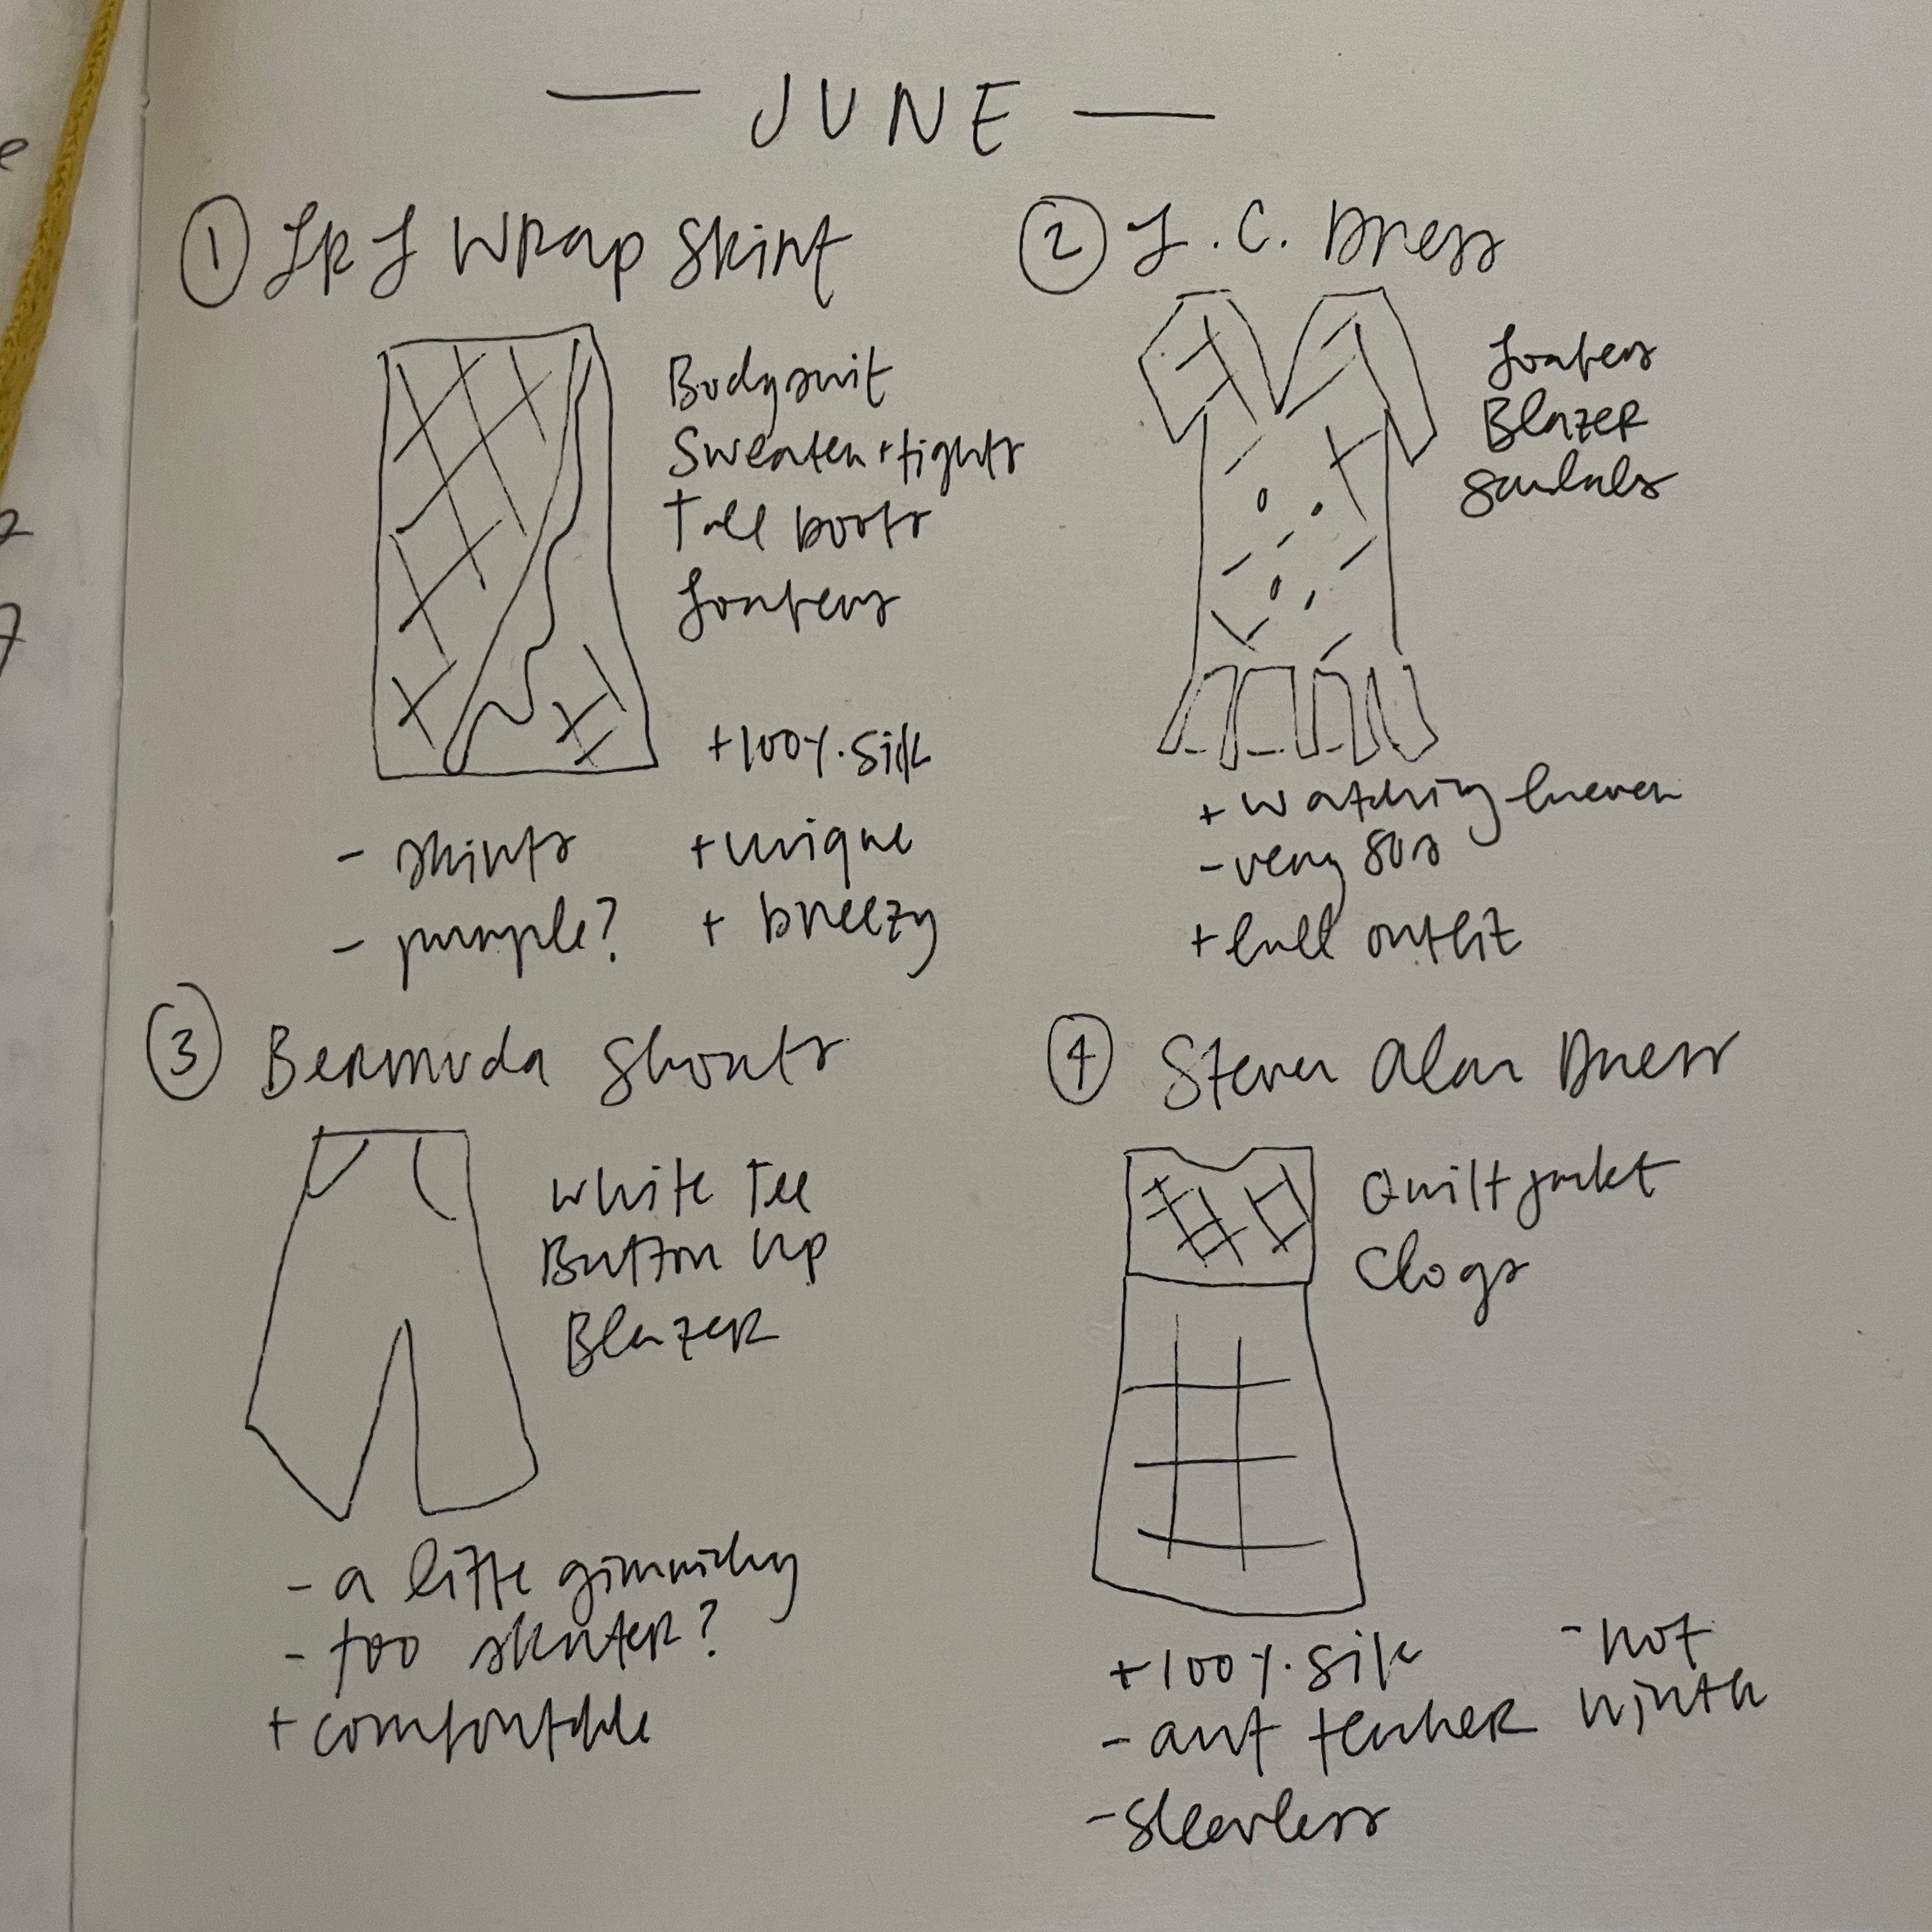 — JUNE —
① LRL Wrap Skirt
Bodysuit
Sweater + tights
Tall boots
Loafers
+ 100% silk
- skirts
+ unique
- purple?
+ breezy
② L.C. Dress
Loafers
Blazer
Sandals
- very 80s
+ full outfit
③ Bermuda Shorts
White Tee
Button Up
Blazer
- a little gimmicky
- too skater?
+ comfortable
④ Steven Alan Dress
Quilt jacket
Clogs
+ 100% silk
- art teacher
- sleeveless
- not